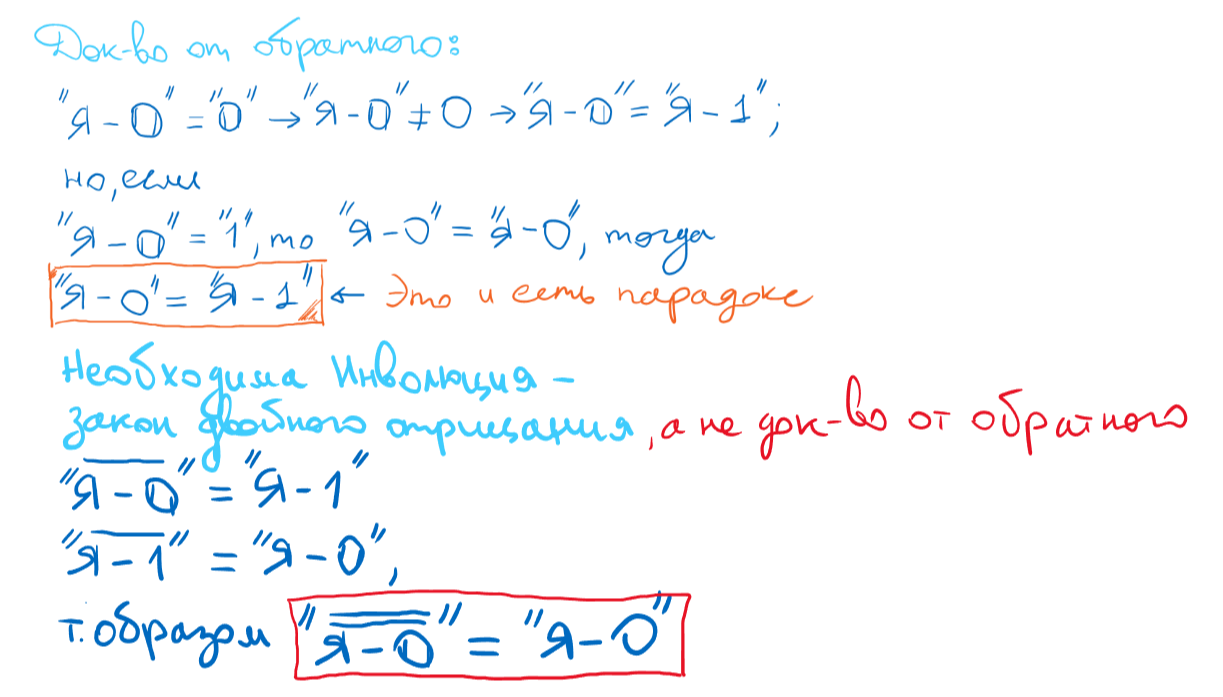 Док-во от обратного:
"Я-0" = "0" → "Я-0" ≠ 0 → "Я-0" = "Я-1";
но, если
"Я-0" = "1", то "Я-0" = "Я-0", тогда
"Я-0" = "Я-1" ← Это и есть парадокс
Необходима Инволюция -
закон двойного отрицания, а не док-во от обратного
"Я̅-̅0̅" = "Я-1"
"Я̅-̅1̅" = "Я-0",
т. образом "Я̿-̿0̿" = "Я-0"